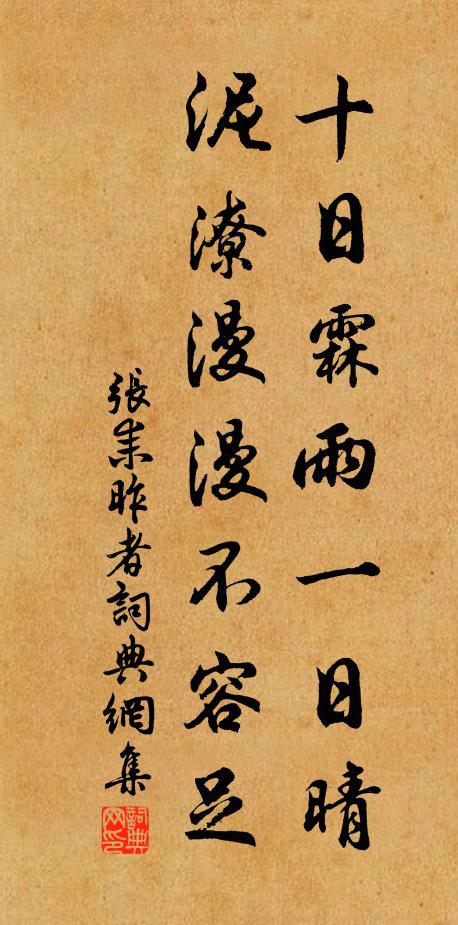 十日霖雨一日晴
泥潦漫漫不容足
張耒昨者詞典網集
詞典网印